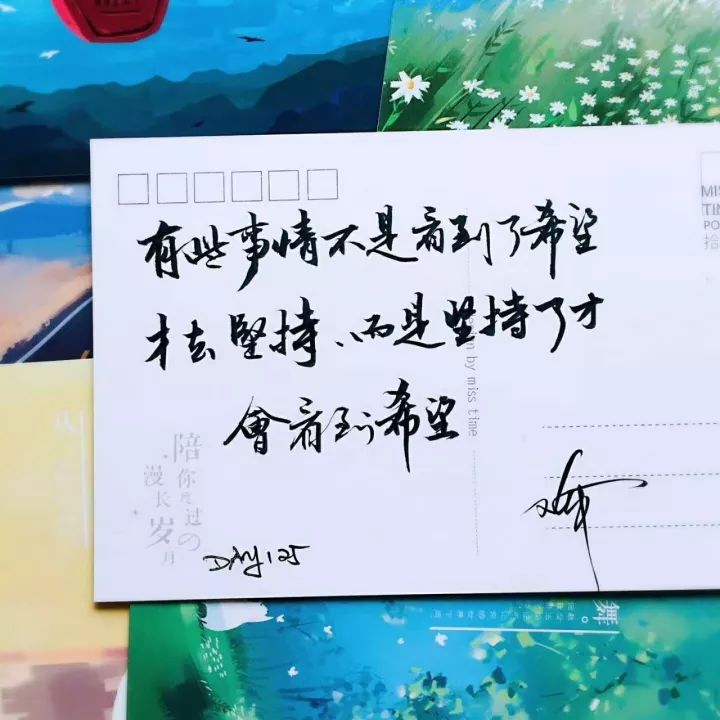 有些事情不是看到了希望
才去堅持、而是坚持了才
會看到希望
DAY125
陪
你度过の
漫长
岁月
by miss time
MIS
TIM
PO
拾
舞。